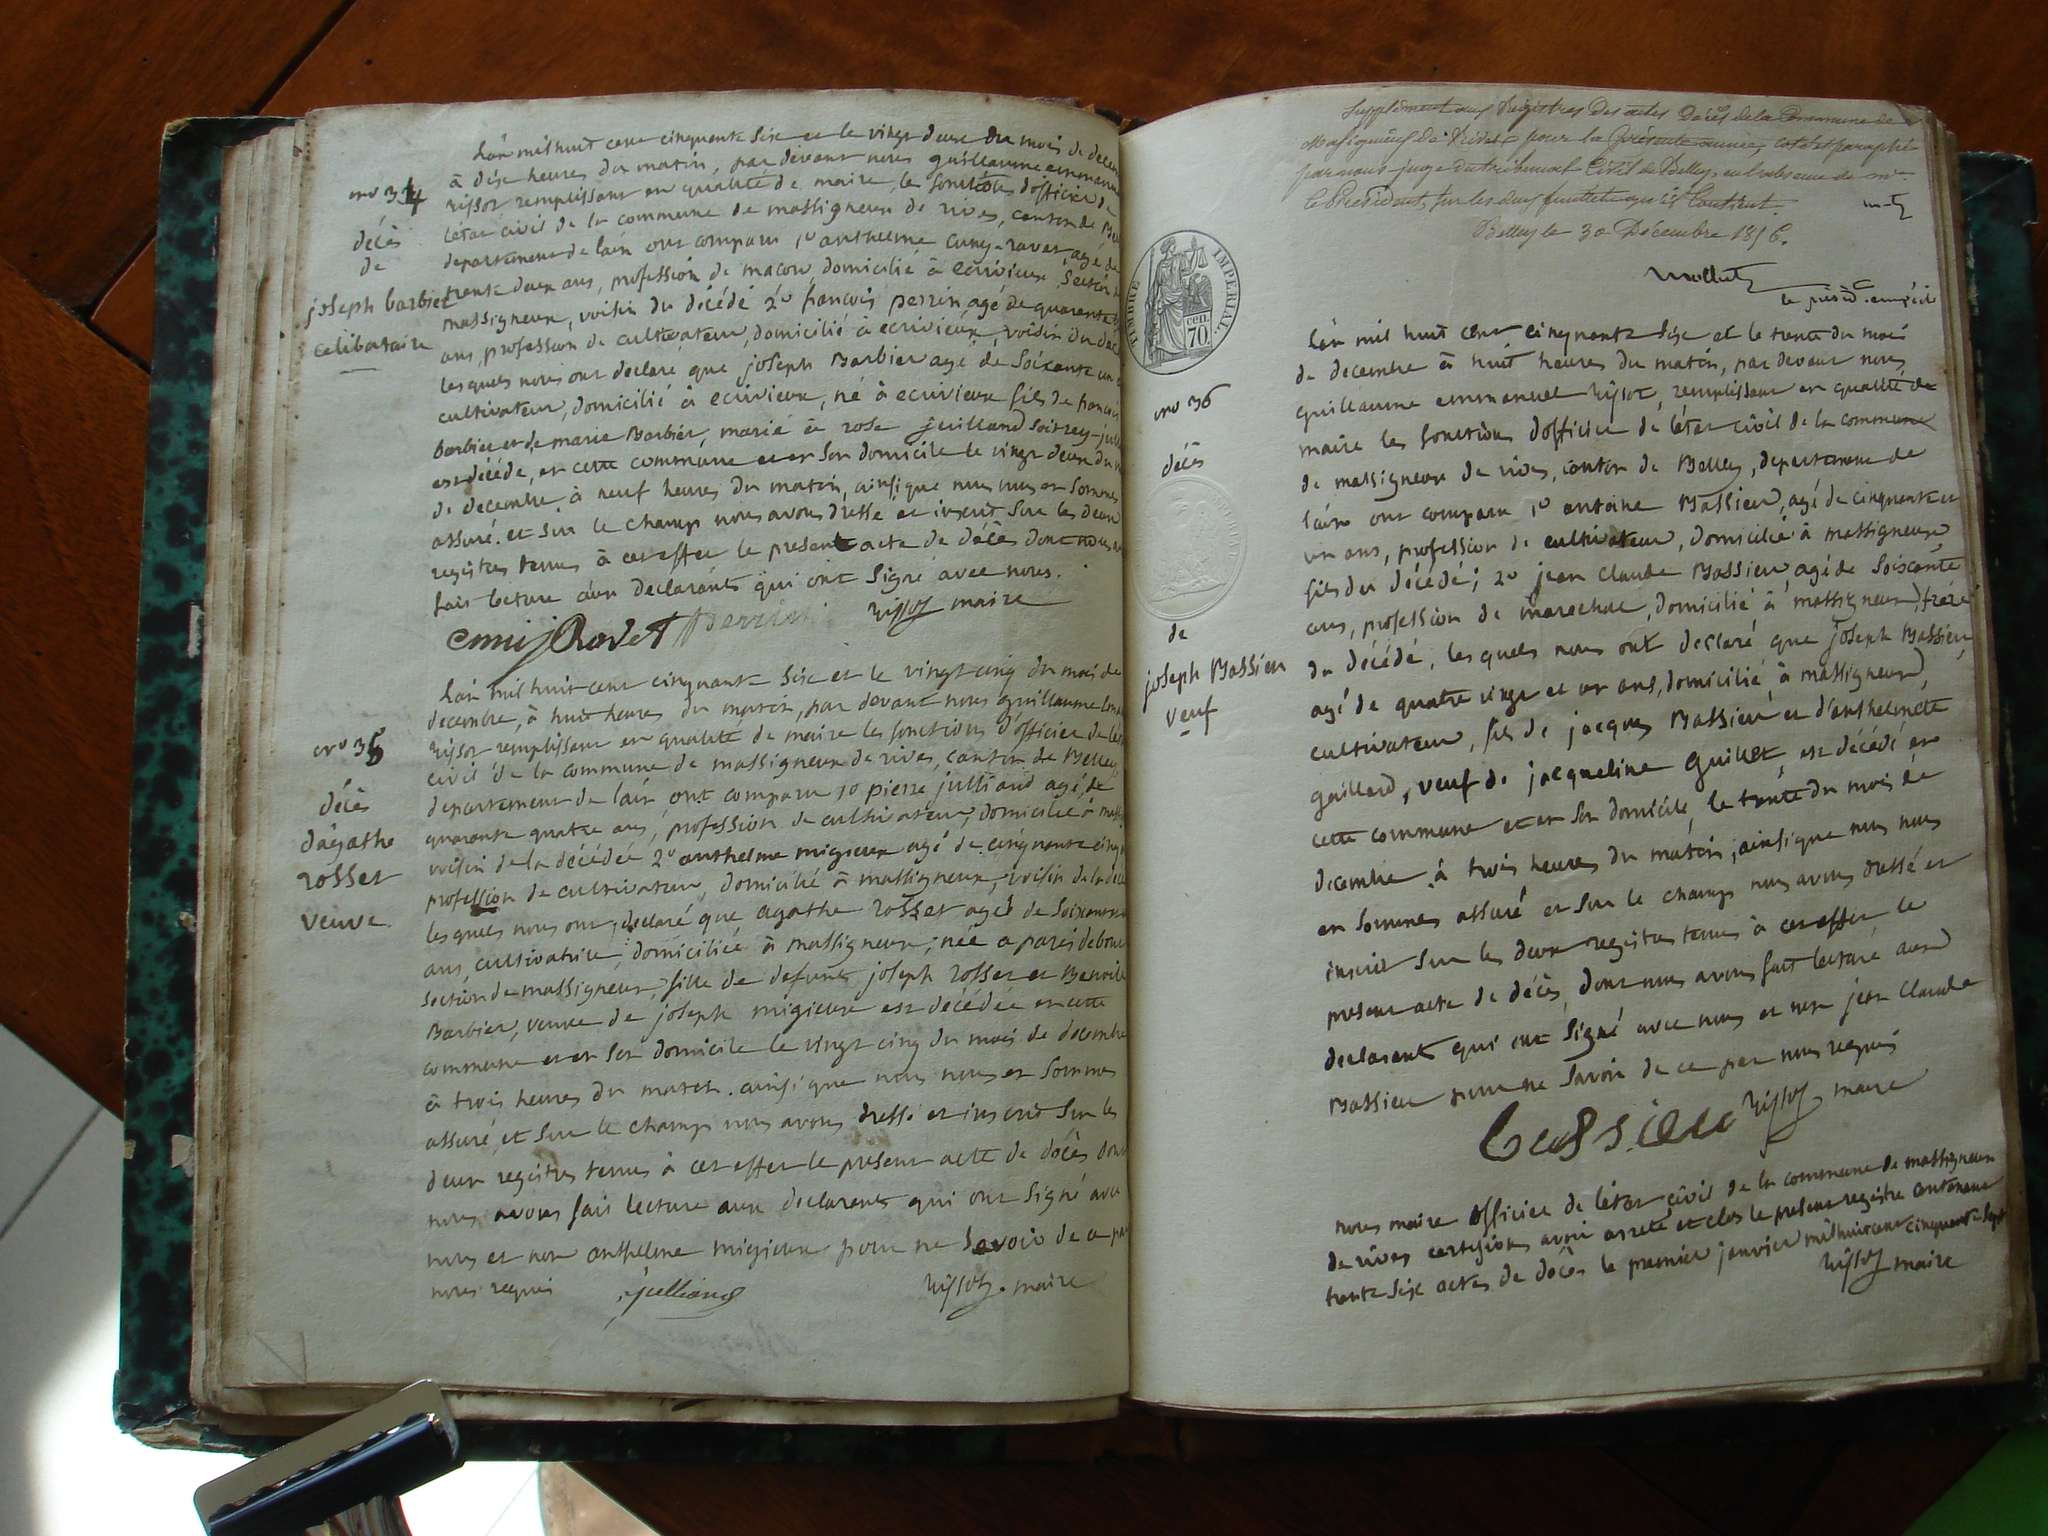 Lan mil huit cent cinquante sise et le vingt deux du mois de decem
à dise heures du matin, par devant nous guillaume emmanu
rissot remplissant en qualité de maire, les fonctions dofficier de
letat civil de la commune de massigneux de rives, canton de Bel
departement de lain ont comparu 1º anthelme cuny-ravet, agé de
trente deux ans, profession de macon, domicilié à ecrivieux Section
massigneux, voisin du décédé 2º françois perrin agé de quarante
ans, profession de cultivateur, domicilié à ecrivieux, voisin du déc
lesquels nous ont declaré que joseph Barbier agé de Soixante un
cultivateur, domicilié à ecrivieux, né à ecrivieux fils de francois
barbier et de marie Barbier, marié à rose juilland
est décédé, en cette commune et en Son domicile le vingt deux du
de decembre à neuf heures du matin, ainsi que nous nous en Sommes
assuré. et sur le champ nous avons dressé et inscrit Sur les deux
registres tenus à cet effet le present acte de décès dont nous
fait lecture aux declarants qui ont Signé avec nous.
cuni Ravet Perrin rissot maire
nº 34
décès
de
joseph barbier
celibataire
Lan mil huit cent cinquante sise et le vingt cinq du mois de
decembre, à huit heures du matin, par devant nous guillaume
rissot remplissant en qualité de maire les fonctions d'officier de
civil de la commune de massigneux de rives, canton de Belley
departement de lain ont comparu 1º pierre julliand agé de
quarante quatre ans, profession de cultivateur, domicilié à
voisin de la décédée 2º anthelme migieux agé de cinquante cinq
profession de cultivateur, domicilié à massigneux, voisin de la
lesquels nous ont declaré que agathe rosset agée de
ans, cultivatrice, domiciliée à massigneux, née a
Section de massigneux, fille de defunts joseph rosset et
Barbier, veuve de joseph migieux est décédée en cette
commune et en Son domicile le vingt cinq du mois de decembre
à trois heures du matin. ainsi que nous nous en Sommes
assuré, et Sur le champ nous avons dressé et inscrit Sur les
deux registres tenus à cet effet le present acte de décès dont
nous avons fait lecture aux declarants qui ont Signé avec
nous et non anthelme migieux pour ne Savoir de ce par
nous requis julliand rissot. maire
nº 35
décès
dagathe
rosset
veuve
Supplément aux Registres des actes Décès de la Commune de
Massigneux de Rives pour la Présente année, coté et paraphé
par nous juge du tribunal Civil de Belley, en l'absence de Mr
le President, sur les deux feuillets qui le Contient.
Belley le 30 Décembre 1856.
le présid. empêché
TIMBRE IMPERIAL.
70 cen.
nº 36
décès
de
joseph Bassieu
veuf
Lan mil huit cent cinquante sise et le trente du mois
de decembre à huit heures du matin, par devant nous
guillaume emmanuel rissot, remplissant en qualité de
maire les fonctions dofficier de létat civil de la commune
de massigneux de rives, canton de Belley, departement de
lain ont comparu 1º antoine Bassieu, agé de cinquante et
un ans, profession de cultivateur, domicilié à massigneux
fils du décédé; 2º jean claude Bassieu, agé de Soixante
ans, profession de marechal, domicilié à massigneux, frère
du décédé, lesquels nous ont declaré que joseph Bassieu
agé de quatre vingt et un ans, domicilié à massigneux,
cultivateur, fils de jacques Bassieu et d'anthelmette
gaillard, veuf de jacqueline guillet, est décédé en
cette commune et en Son domicile, le trente du mois de
decembre à trois heures du matin; ainsi que nous nous
en Sommes assuré et Sur le champ nous avons dressé et
inscrit Sur les deux registres tenus à cet effet le
present acte de décès, dont nous avons fait lecture aux
declarants qui ont Signé avec nous et non jean Claude
Bassieu pour ne Savoir de ce par nous requis
bassieu rissot maire
nous maire officier de létat civil de la commune de massigneux
de rives certifions avoir arreté et clos le present registre contenant
trente sise actes de décès le premier janvier mil huit cent cinquante Sept
rissot maire